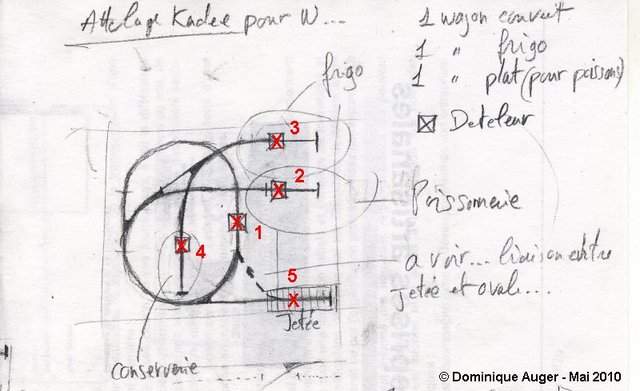 Attelage Kadee pour N...
1 wagon couvert
1 " frigo
1 " plat (pour poissons)
Deteleur
frigo
3
2
Poissonnerie
1
4
a voir... liaison entre
Jetée et ovale...
5
Jetée
conserverie
© Dominique Auger - Mai 2010